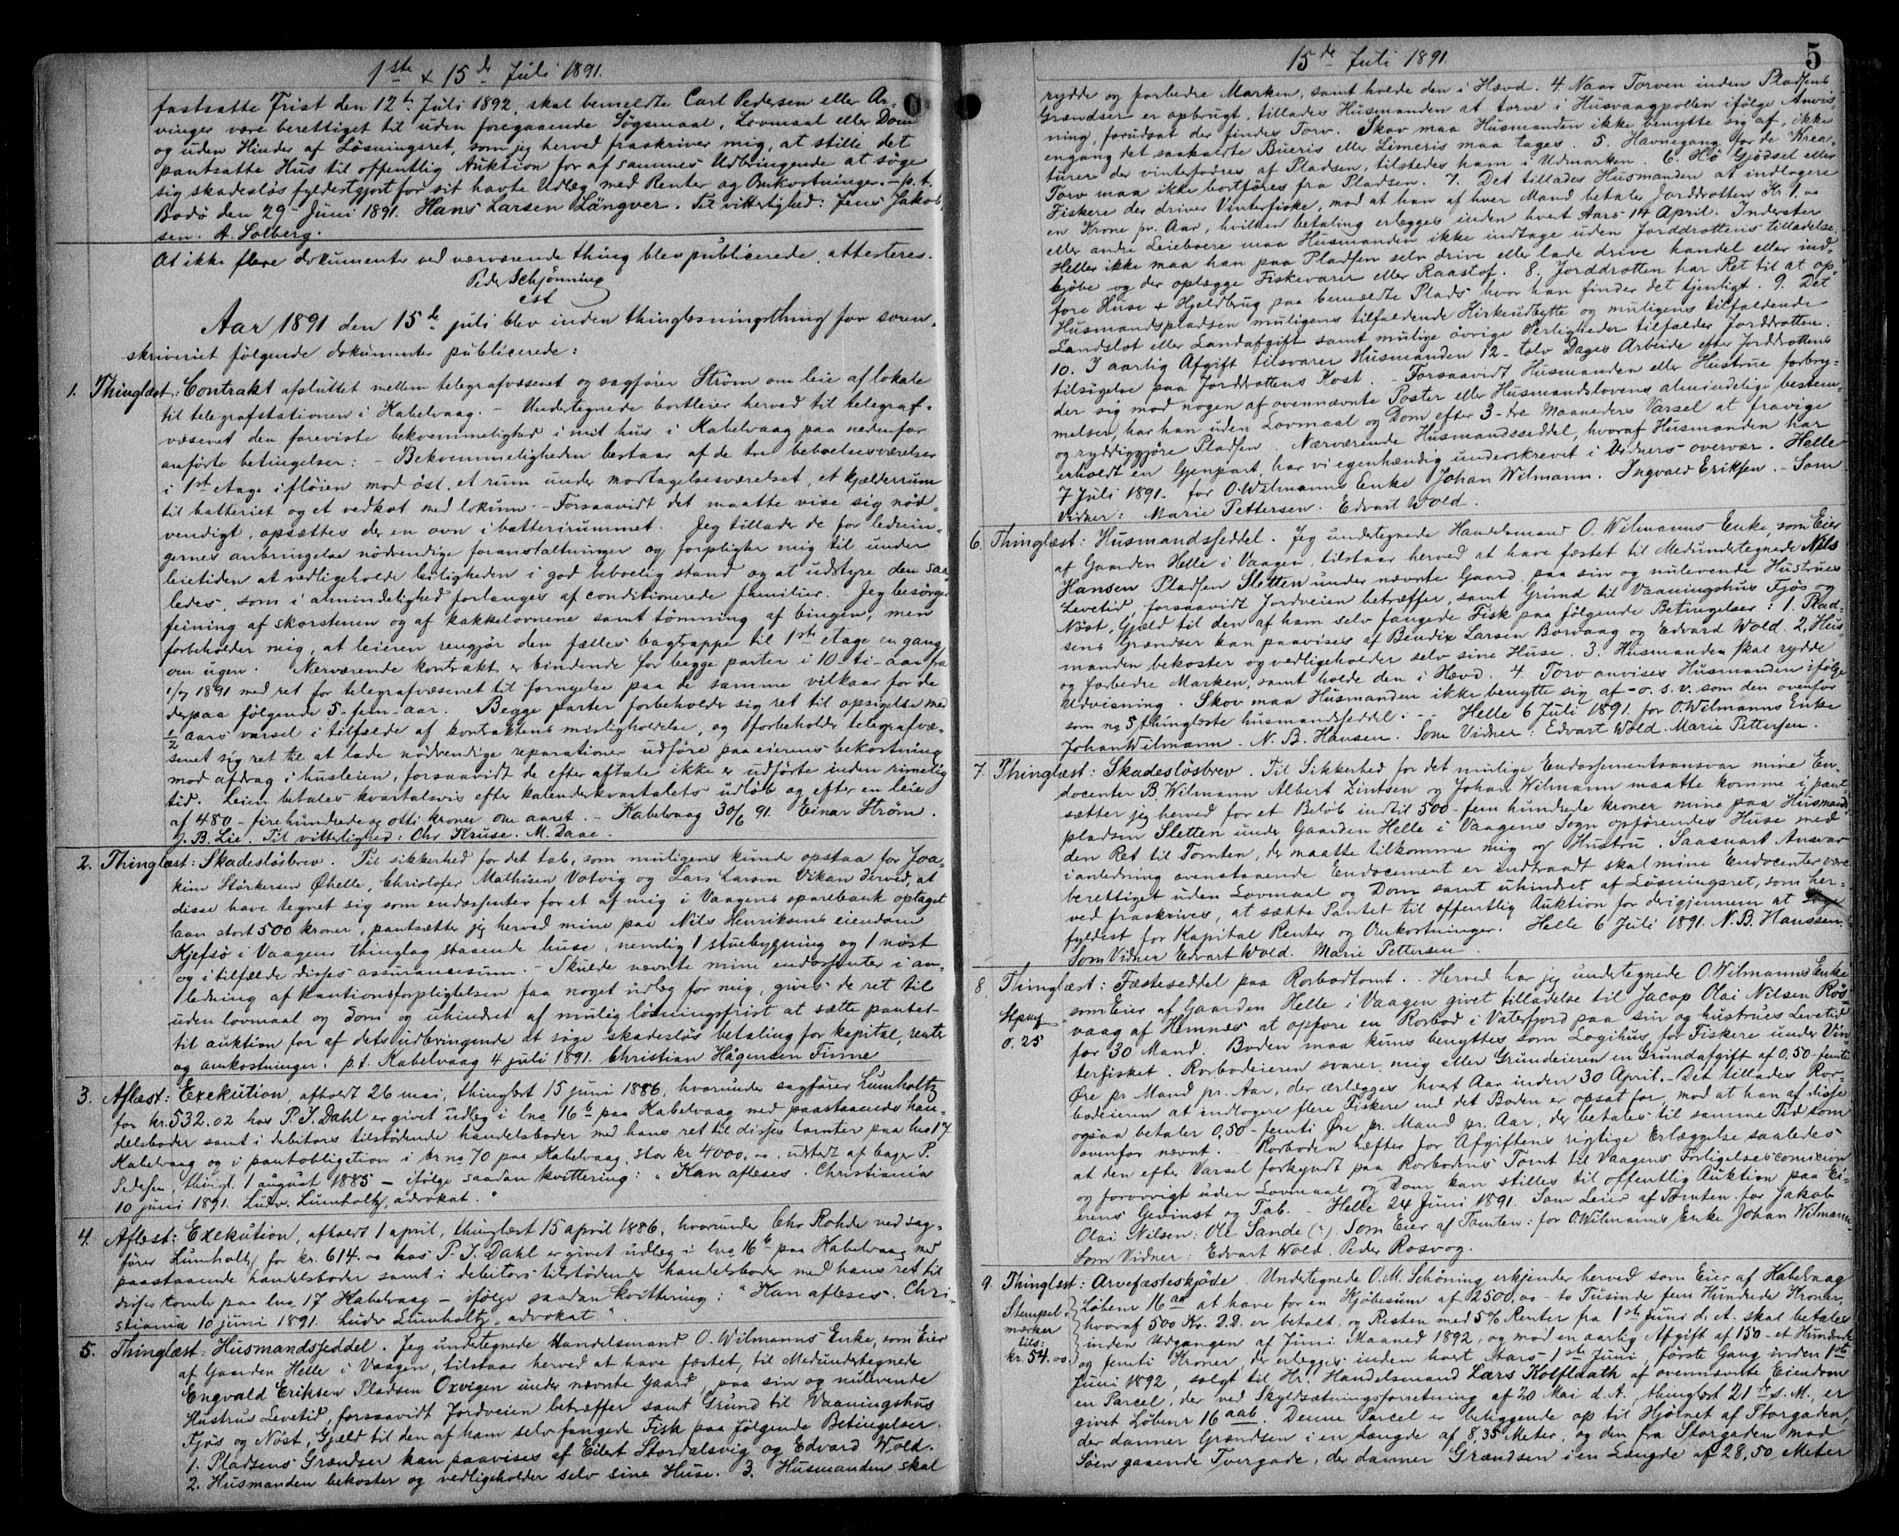 1ste & 15de Juli 1891.
fastsatte Frist den 12te Juli 1892, skal bemeldte Carl Pedersen eller Ar-
vinger være berettiget til uden foregaaende Søgsmaal, Lovmaal eller Dom
og uden Hinder af Løsningsret, som jeg herved fraskriver mig, at stille det
pantsatte Hus til offentlig Auktion for af sammes Udbringende at søge
sig skadesløs fyldestgjort for sit havte Udlæg med Renter og Omkostninger. - p. t.
Bodø den 29 Juni 1891. Hans Larsen Längver. Til vitterlighed: Jens Jakob-
sen. A. Solberg.
At ikke flere dokumenter ved nærværende thing blev publicerede, attesteres.
Peder Schjønning
cst
Aar 1891 den 15de juli blev inden thinglæsningsthing for soren-
skriveriet følgende dokumenter publicerede:
1. Thinglæst: Contrakt afsluttet mellem telegrafvæsenet og sagfører Strøm om leie af lokale
til telegrafstationen i Kabelvaag. - Undertegnede bortleier herved til telegraf-
væsenet den foreviste bekvemmelighed i mit hus i Kabelvaag paa nedenfor
anførte betingelser: - Bekvemmeligheden bestaar af de tre beboelsesværelser
i 1st etage i fløien mod øst, et rum under modtagelsesværelset, et kjælderrum
til batteriet og et vedkot med lokum. - Forsaavidt det maatte vise sig nød-
vendigt, opsættes der en ovn i batterirummet. Jeg tillader de for lednin-
gernes anbringelse nødvendige foranstaltninger og forpligter mig til under
leietiden at vedligeholde leiligheden i god beboelig stand og at udstyre den saa-
ledes, som i almindelighed forlanges af conditionerede familier. Jeg besørger
feining af skorstenen og af kakkelovnene samt tømning af bingen, men
forbeholder mig, at leieren rengjør den fælles bagtrappe til 1ste etage en gang
om ugen. Nærværende kontrakt er bindende for begge parter i 10-ti-aar fra
1/7 1891 med ret for telegrafvæsenet til fornyelse paa de samme vilkaar for de
derpaa følgende 5-fem-aar. Begge parter forbeholder sig ret til opsigelse med
1/2 aars varsel i tilfælde af kontraktens misligholdelse, og forbeholder telegrafvæ-
senet sig ret til at lade nødvendige reparationer udføre paa eierens bekostning
mod afdrag i husleien, forsaavidt de efter aftale ikke er udførte inden rimelig
tid. Leien betales kvartalsvis efter kalenderkvartalets udløb og efter en leie
af 480 - firehundrede og otti kroner om aaret. - Kabelvaag 30/6 91. Einar Strøm.
J. B. Lie. Til vitterlighed: Chr. Kruse. M. Daae.
2. Thinglæst: Skadesløsbrev. Til sikkerhed for det tab, som muligens kunde opstaa for Joa-
kim Störkersen Øhelle, Christofer Mathisen Votvig og Lars Larsen Vikan derved, at
disse have tegnet sig som endossenter for et af mig i Vaagens sparebank optaget
laan stort 500 kroner, pantsætter jeg herved mine paa Nils Henriksens eiendom
Kjefsø i Vaagens thinglag staaende huse, nemlig 1 stuebygning og 1 nøst
og i tilfælde disses assurancesum. - Skulde nævnte mine endossenter i an-
ledning af kautionsforpligtelsen faa noget udlæg for mig, gives de ret til
uden lovmaal og dom og uhindret af mulig løsningsfrist at sætte pantet
til auktion for af dets udbringende at søge skadesløs betaling for kapital, renter
og omkostninger. p. t. Kabelvaag 4 juli 1891. Christian Hågensen Finne
3. Aflæst: Exekution, afholdt 26 mai, thinglæst 15 juni 1886, hvorunder sagfører Lumholtz
for kr. 532.02 hos P. J. Dahl er givet udlæg i lno 16b paa Kabelvaag med paastaaende han-
delsboder samt i debitors tilstødende handelsboder med hans ret til disses tomter paa lno 17
Kabelvaag og i pantobligation i br no 70 paa Kabelvaag, stor kr 4000,00. udstedt af bager P.
Pedersen, thingl. 1 august 1885 - ifølge saadan kvittering: "Kan aflæses. Christiania
10 juni 1891. Ludv. Lumholtz, advokat."
4. Aflæst: Exekution, afholdt 1 april, thinglæst 15 april 1886, hvorunder Chr Rohde ved sag-
fører Lumholtz for kr. 614.00 hos P. J. Dahl er givet udlæg i lno 16b paa Kabelvaag med
paastaaende handelsboder samt i debitors tilstødende handelsboder med hans ret til
disses tomter paa lno 17 Kabelvaag - ifølge saadan kvittering: "Kan aflæses. Chri-
stiania 10 juni 1891. Ludv Lumholtz, advokat"
5. Thinglæst: Husmandsseddel. Jeg undertegnede Handelsmand O. Wilmanns Enke, som Eier
af Gaarden Helle i Vaagen, tilstaar herved at have fæstet til Medundertegnede
Engvald Eriksen Pladsen Oxvigen under nævnte Gaard, paa sin og nulevende
Hustrus Levetid, forsaavidt Jordveien betræffer samt Grund til Vaaningshus
Fjøs og Nøst, Gjeld til den af ham selv fangede Fisk paa følgende Betingelser.
1. Pladsens Grændser kan paavises af Eilet Stordalsvig og Edvard Wold.
2. Husmanden bekoster og vedligeholder selv sine Huse. 3. Husmanden skal
15de Juli 1891.
5
rydde og forbedre Marken, samt holde den i Hævd. 4 Naar Torven inden Pladsens
Grændser er opbrugt, tillades Husmanden at torve i Husvaagpollen ifølge Anvis-
ning, forudsat der findes Torv. Skov maa Husmanden ikke benytte sig af, ikke
engang det saakaldte Bueris eller Limeris maa tages. 5. Havnegang for de Krea-
turer der vinterfødres af Pladsen, tilstedes ham i Udmarken. 6. Hø Gjødsel eller
Torv maa ikke bortføres fra Pladsen. 7. Det tillades Husmanden at indlogere
Fiskere der driver Vinterfiske, mod at han af hver Mand betaler Jorddrotten Kr 1.00
en Krone pr. Aar, hvilken betaling erlægges inden hvert Aars 14 April. Inderster
eller andre Leieboere maa Husmanden ikke indtage uden Jorddrottens tilladelse.
Heller ikke maa han paa Pladsen selv drive eller lade drive handel eller ind-
kjøbe og der oplægge Fiskevarer eller Raastof. 8. Jorddrotten har Ret til at op-
føre Huse & Hjeldbrug paa bemeldte Plads hvor han finder det tjenligt. 9. Det
Husmandspladsen muligens tilfaldende Hirkeudbytte og muligens tilfaldende
Landslot eller Landafgift samt mulige øvrige Herligheder tilfalder Jorddrotten.
10. I aarlig Afgift tilsvarer Husmanden 12 - tolv Dages Arbeide efter Jorddrottens
tilsigelse paa Jorddrottens Kost. - Forsaavidt Husmanden eller Hustrue forbry-
der sig mod nogen af ovennævnte Poster eller Husmandslovens almindelige bestem-
melser, har han uden Lovmaal og Dom efter 3-tre Maaneders Varsel at fravige
og ryddiggjøre Pladsen. Nærværende Husmandsseddel, hvoraf Husmanden har
erholdt en Gjenpart, har vi egenhændig underskrevet i Vidners overvær. Helle
7 Juli 1891. for O. Wilmanns Enke Johan Wilmann. Ingvald Eriksen. - Som
Vidner: Marie Pettersen. Edvart Wold.
6. Thinglæst: Husmandsseddel. Jeg undertegnede Handelsmand O. Wilmanns Enke, som Eier
af Gaarden Helle i Vaagen, tilstaar herved at have fæstet til Medundertegnede Nils
Hansen Pladsen Sletten under nævnte Gaard, paa sin og nulevende Hustrues
Levetid, forsaavidt Jordveien betræffer, samt Grund til Vaaningshus Fjøs og
Nøst, Gjæld til den af ham selv fangede Fisk paa følgende Betingelser: 1. Plad-
sens Grændser kan paavises af Bendix Larsen Borvaag og Edvard Wold. 2, Hus-
manden bekoster og vedligeholder selv sine Huse. 3. Husmanden skal rydde
og forbedre Marken, samt holde den i Hævd. 4. Torv anvises Husmanden ifølge
Udvisning. Skov maa Husmanden ikke benytte sig af - o. s. v. som den ovenfor
som no 5 thinglæste husmandsseddel. - Helle 6 Juli 1891. for O. Wilmanns Enke
Johan Wilmann. N. B. Hansen. Som Vidner: Edvart Wold. Marie Pettersen.
7. Thinglæst: Skadesløsbrev. Til Sikkerhed for det mulige Endossementsansvar mine En-
docenter B. Wilmann Albert Lintsen og Johan Wilmann maatte komme i, pant-
sætter jeg herved for et Beløb indtil 500 - fem hundrede kroner mine paa Husmands-
pladsen Sletten under Gaarden Helle i Vaagens Sogn opførendes Huse med
den Ret til Tomten, der maatte tilkomme mig og Hustru. Saasnart Ansvar
i anledning ovenstaaende Endocement er indtraadt skal mine Endocenter være
berettiget uden Lovmaal og Dom samt uhindret af Løsningsret, som her-
ved fraskrives, at sætte Pantet til offentlig Auktion for derigjennem at
fyldest for Kapital Renter og Omkostninger. Helle 6 Juli 1891. N. B. Hanssen.
Som Vidner Edvart Wold. Marie Pettersen.
8. Thinglæst: Fæsteseddel paa Rorbodtomt. - Herved har jeg undertegnede O. Wilmanns Enke
som Eier af Gaarden Helle i Vaagen givet tilladelse til Jacop Olai Nilsen Røs-
Slpmg
0.25
vaag af Hemnes at opføre en Rorbod i Vaterfjord paa sin og hustrues Levetid
for 30 Mand. Boden maa kuns benyttes som Logihus for Fiskere under Vin-
terfisket. Rorbodeieren svarer mig eller Grundeieren en Grundafgift af 0.50 - femti
Øre pr. Mand pr. Aar, der ærlegges hvert Aar inden 30 April. - Det tillades Ror-
bodeieren at indlogere flere Fiskere end det Boden er opsat for, mod at han af disse
ogsaa betaler 0,50 - femti Øre pr. Mand pr. Aar, der betales til samme Tid som
ovenfor nævnt. - Rorboden hæfter for Afgiftens rigtige Erlæggelse saaledes
at den efter Varsel forkyndt paa Rorbodens Tomt til Vaagens Forligelsescomission
og forøvrigt uden Lovmaal og Dom kan stilles til offentlig Auktion paa Ei-
erens Gevinst og Tab. - Helle 24 Juni 1891. Som Leier af Tomten: for Jakob
Olai Nilsen: Ole Sande (-). Som Eier af Tomten: for O. Wilmanns Enke Johan Wilmann
Som Vidner: Edvart Wold. Peder Rosvog.
9. Thinglæst: Arvefæsteskjøde. Undertegnede O. M. Schöning erkjender herved som Eier af Kabelvaag
Stempel-
mærker
tils.
kr. 54.00
Løbenr 16aa at have for en Kjøbesum af 2500,00 - to Tusinde fem Hundrede Kroner,
hvoraf 500 Kr. D.D. er betalt, og Resten med 5% Renter fra 1ste Juni d. A. skal betales
inden Udgangen af Juni Maaned 1892, og mod en aarlig Afgift af 150 - et Hundrede
og femti Kroner, der erlægges inden hvert Aars 1ste Juni, første Gang inden 1ste
Juni 1892, solgt til Hr. Handelsmand Lars Kolfldath af ovennævnte Eiendom
en Parcel, der ved Skyldsætningsforretning af 20 Mai d. A. thinglæst 21 s. M. er
givet Løbenr 16aab. Denne Parcel er beliggende op til Hjørnet af Storgaden,
der danner Grændsen i en Længde af 8,35 Meter, og den fra Storgaden mod
Søen gaaende Tvergade, der danner Grændsen i en Længde af 28,50 Meter